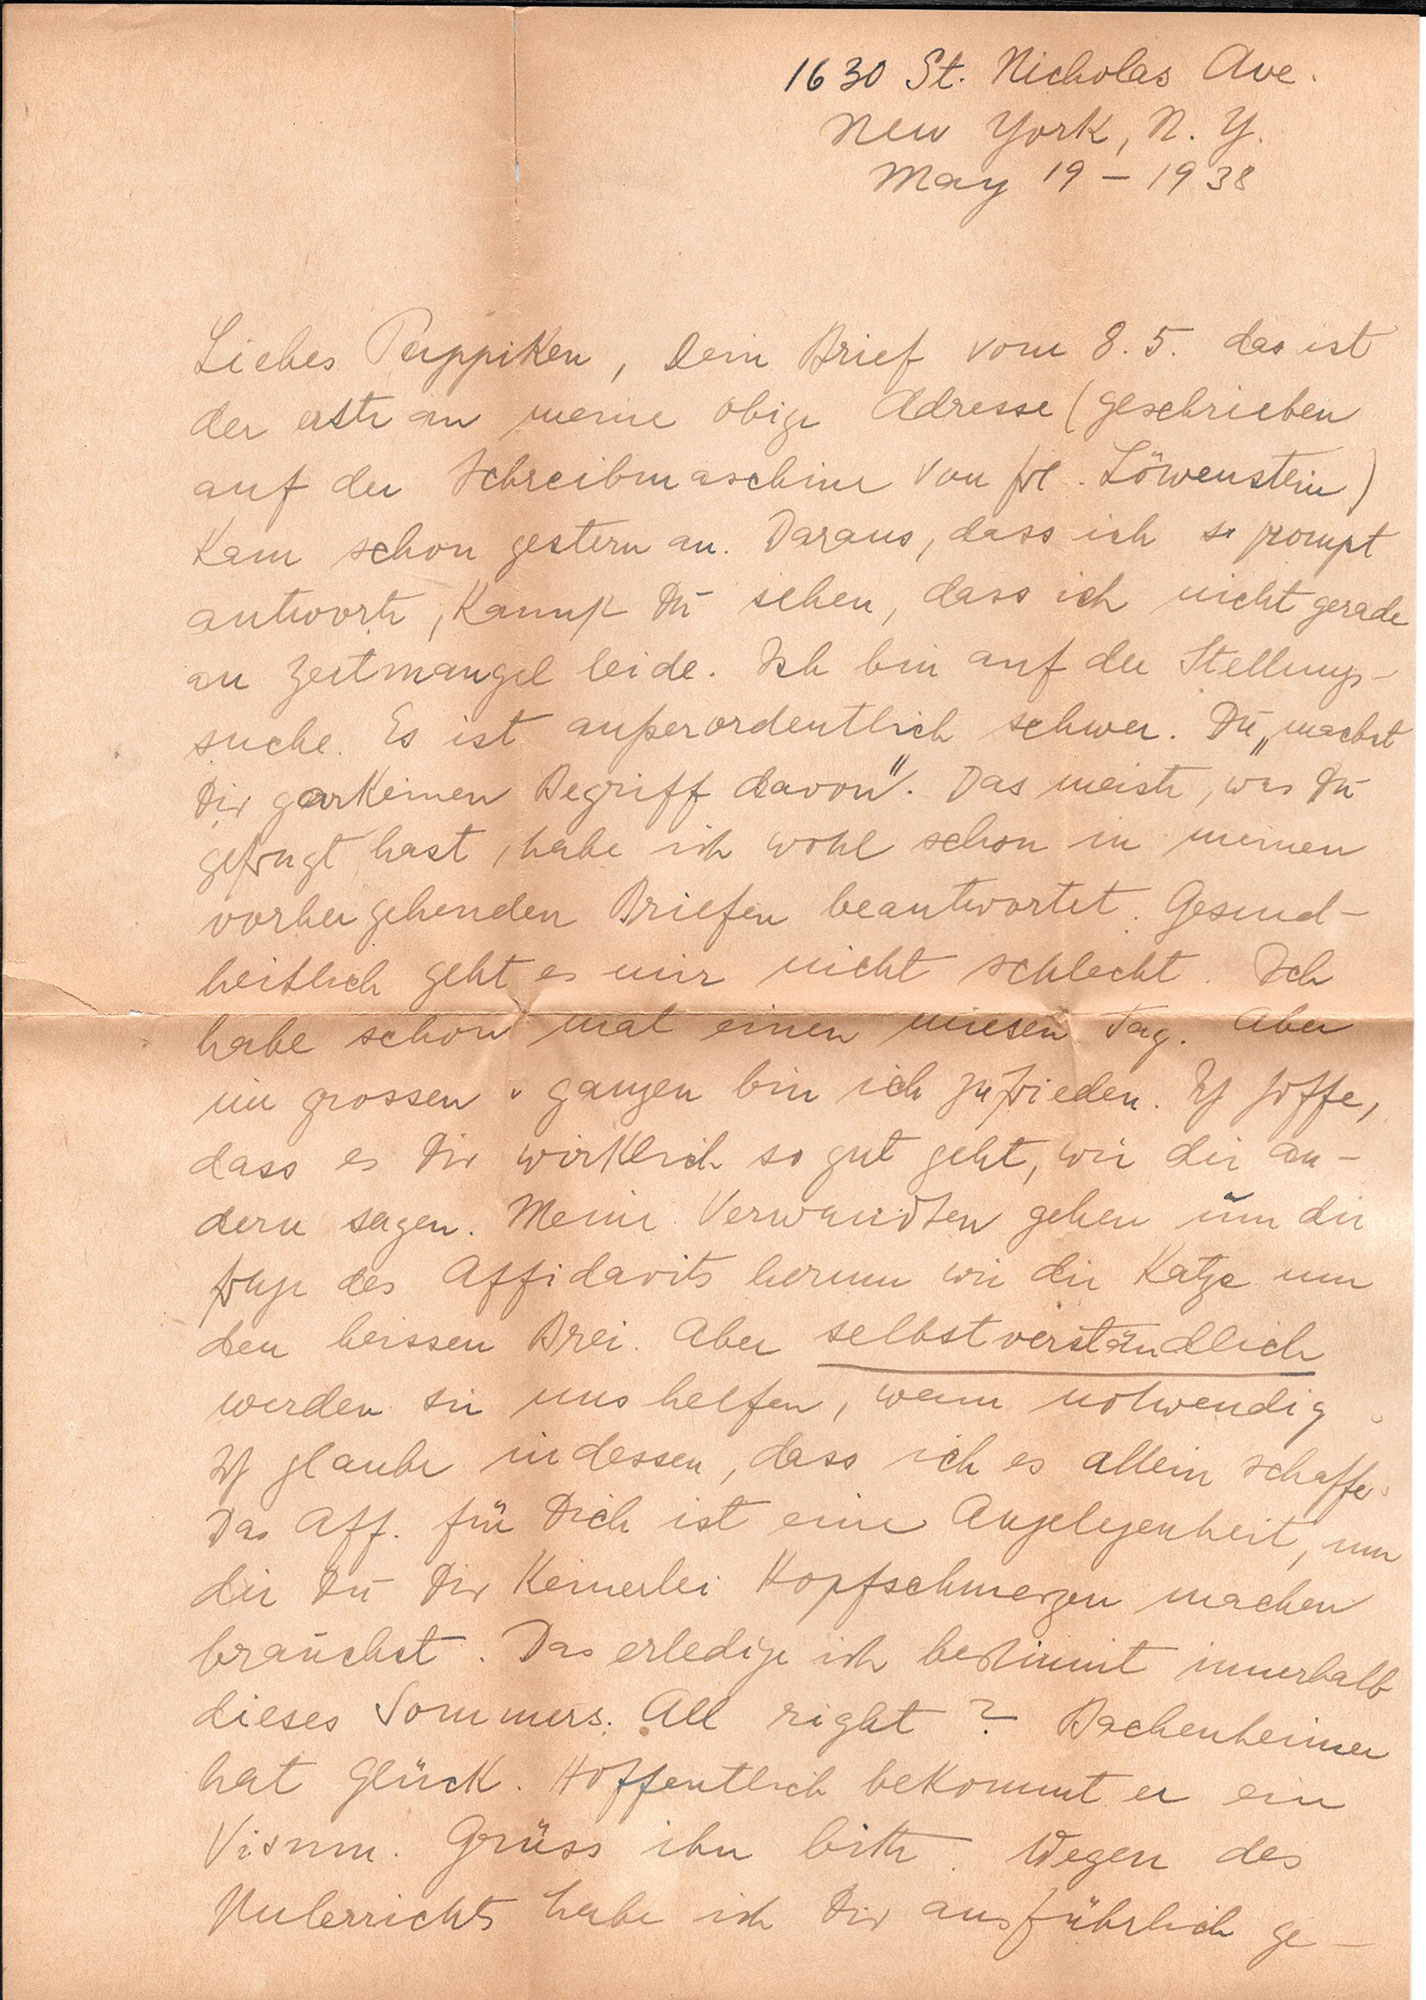 1630 St. Nicholas Ave.
New York, N. Y.
May 19 – 1938
Liebes Puppiken, Dein Brief vom 8. 5. das ist
der erste an meine obige Adresse (geschrieben
auf der Schreibmaschine von Frl. Löwenstein)
kam schon gestern an. Daraus, dass ich so prompt
antworte, kannst Du sehen, dass ich nicht gerade
an Zeitmangel leide. Ich bin auf der Stellungs-
suche. Es ist außerordentlich schwer. Du „machst
Dir garkeinen Begriff davon". Das meiste, was Du
gefragt hast, habe ich wohl schon in meinen
vorhergehenden Briefen beantwortet. Gesund-
heitlich geht es mir nicht schlecht. Ich
habe schon mal einen miesen Tag. Aber
im grossen u. ganzen bin ich zufrieden. Ich hoffe,
dass es Dir wirklich so gut geht, wie die an-
dern sagen. Meine Verwandten gehen um die
Frage des Affidavits herum wie die Katze um
den heissen Brei. Aber selbstverständlich
werden sie uns helfen, wenn notwendig.
Ich glaube indessen, dass ich es allein schaffe.
Das Aff. für Dich ist eine Angelegenheit, um
die Du Dir keinerlei Kopfschmerzen machen
brauchst. Das erledige ich bestimmt innerhalb
dieses Sommers. All right? Bachenheimer
hat Glück. Hoffentlich bekommt er ein
Visum. Grüss ihn bitte. Wegen des
Unterrichts habe ich Dir ausführlich ge-